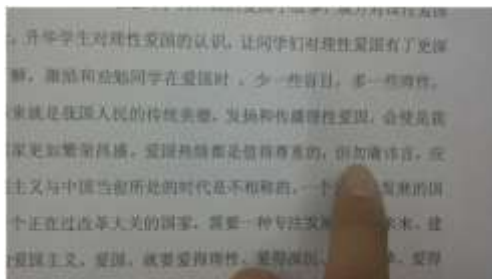 升华学生对理性爱国的认识，让同学们对理性爱国有了更深
解，激励和劝勉同学在爱国时，少一些盲目，多一些理性。
来就是我国人民的传统美德，发扬和传播理性爱国，会使是我
家更加繁荣昌盛。爱国热情都是值得尊重的，但勿庸讳言，
主义与中国当前所处的时代是不相称的，一个 发展的国
个正在过改革大关的国家，需要一种专注发 来，建
爱国主义。爱国，就要爱得理性，爱得 爱得